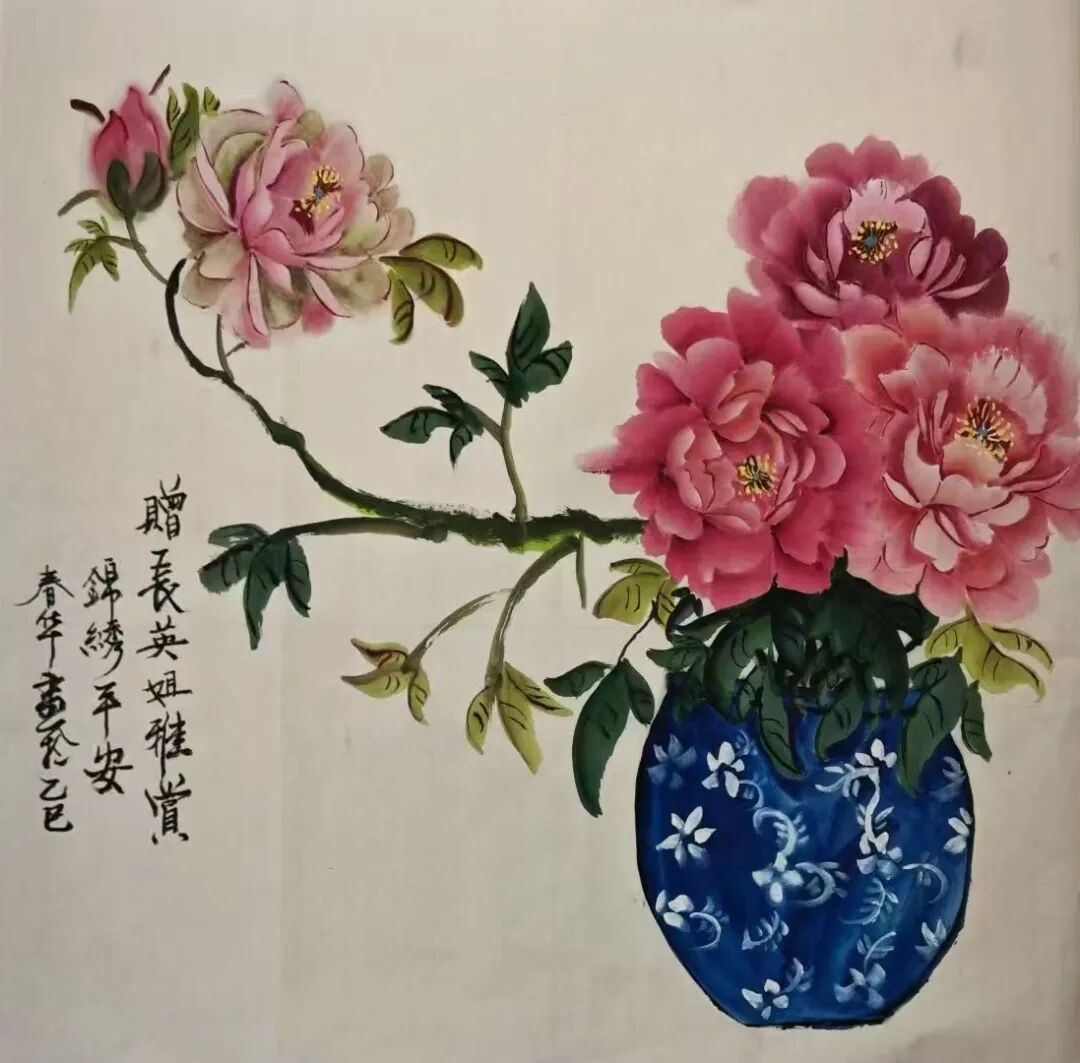 贈長英姐雅賞
錦綉平安
春华畫於乙巳